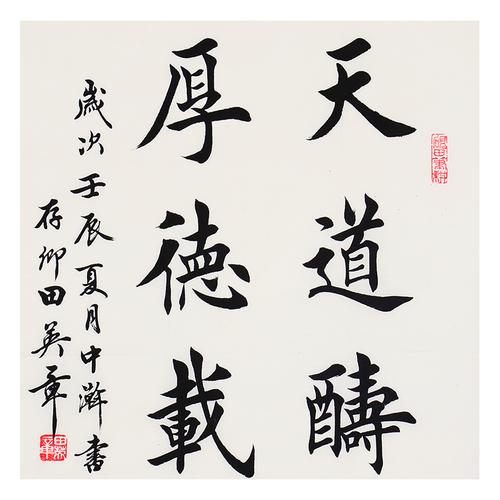 天道醻
厚德載
歲次壬辰夏月中澣書
存卿田英章
田英章